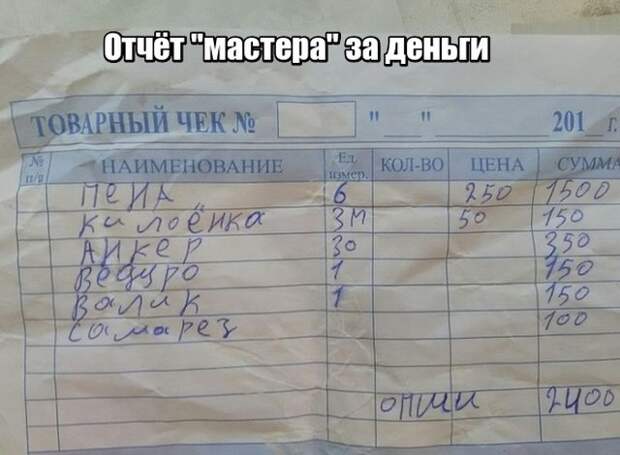 Отчёт "мастера" за деньги
ТОВАРНЫЙ ЧЕК № " " 201 г.
№ п/п НАИМЕНОВАНИЕ Ед. измер. КОЛ-ВО ЦЕНА СУММА
пена 6 250 1500
килоёнка 3м 50 150
анкер 30 350
ведцро 1 150
валик 1 150
самарез 100
опши 2400